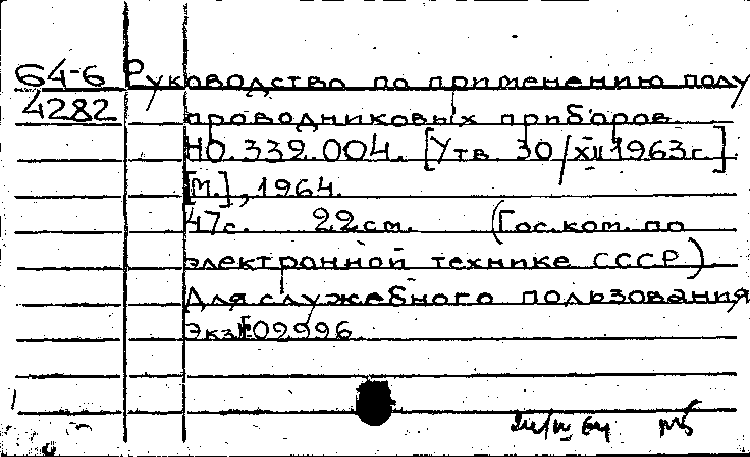 64-6 Руководство по применению полу
4282 проводниковых приборов.
НО.339.004. [Утв. 30/XII 1963г.]
[М.], 1964.
47с. 22см. (Гос.ком. по
электронной технике СССР)
Для служебного пользования
Экз.№02996